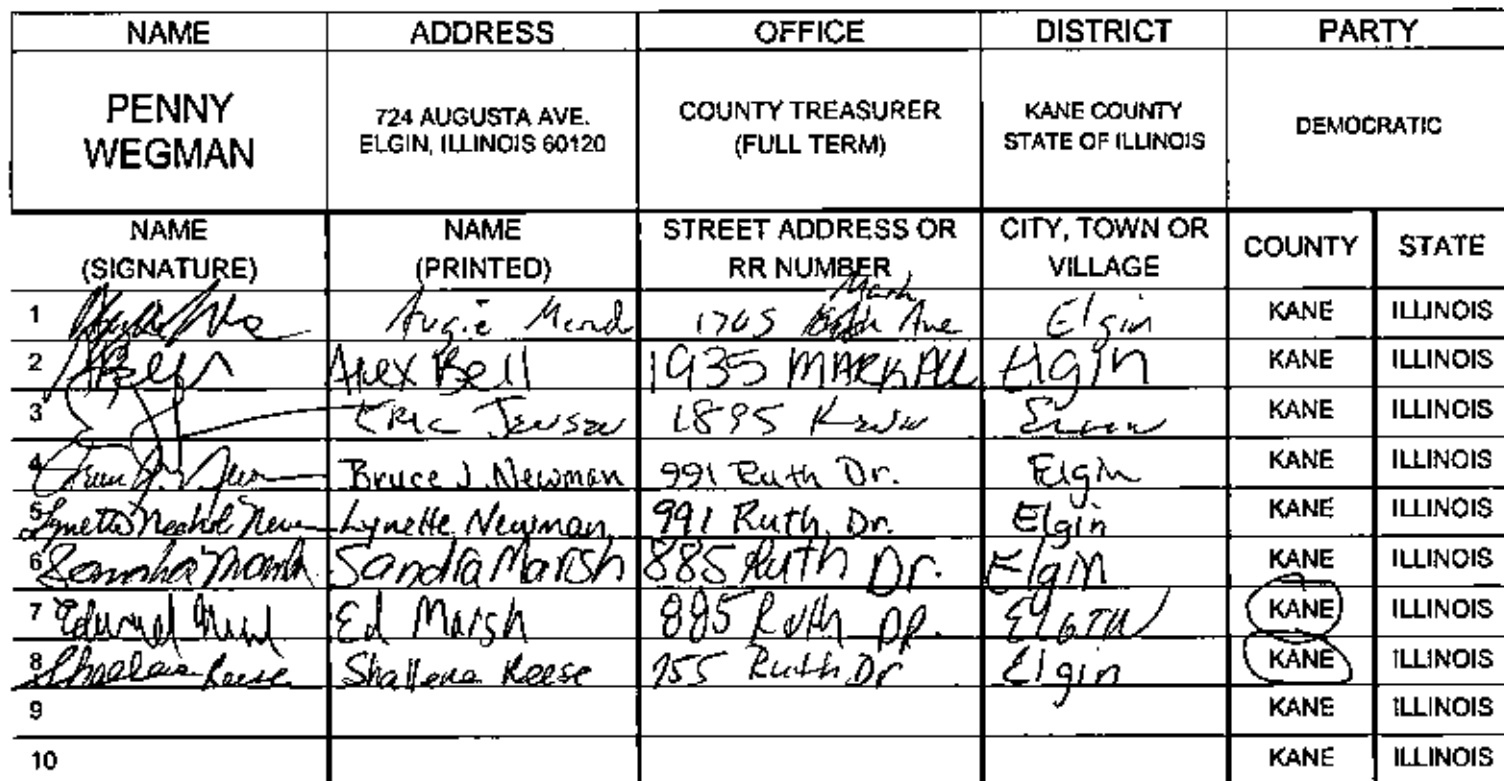 NAME ADDRESS OFFICE DISTRICT PARTY
PENNY WEGMAN 724 AUGUSTA AVE. ELGIN, ILLINOIS 60120 COUNTY TREASURER (FULL TERM) KANE COUNTY STATE OF ILLINOIS DEMOCRATIC
NAME (SIGNATURE) NAME (PRINTED) STREET ADDRESS OR RR NUMBER CITY, TOWN OR VILLAGE COUNTY STATE
1 Augie 1705 Mark Ave Elgin KANE ILLINOIS
2 Alex Bell 1935 MARK AVE Elgin KANE ILLINOIS
3 Eric Jensen 1895 KANE ILLINOIS
4 Bruce J. Newman 991 Ruth Dr. Elgin KANE ILLINOIS
5 Lynette Newman 991 Ruth Dr. Elgin KANE ILLINOIS
6 Sandra Marsh 885 Ruth Dr. Elgin KANE ILLINOIS
7 Ed Marsh 885 Ruth DR. ELGIN KANE ILLINOIS
8 Reese Shallena Reese 755 Ruth Dr Elgin KANE ILLINOIS
9 KANE ILLINOIS
10 KANE ILLINOIS